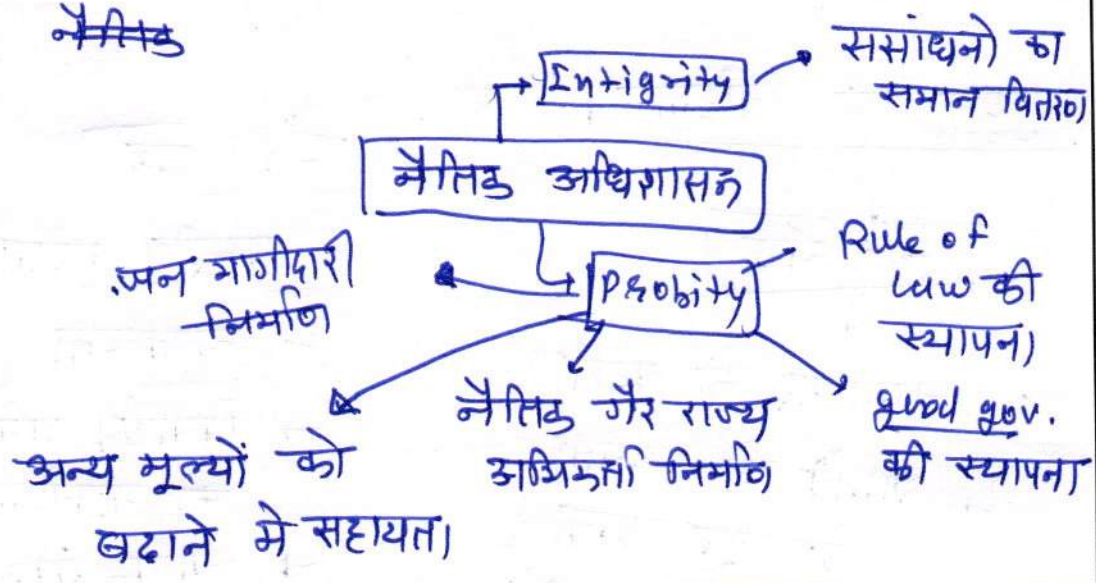 नैतिक
Intigrity
ससांधनो का
समान वितरण
नैतिक अधिशासन
जन भागीदारी
निर्माण
Probity
Rule of
law की
स्थापना
नैतिक गैर राज्य
अभिकर्ता निर्माण
good gov.
की स्थापना
अन्य मूल्यों को
बढाने मे सहायता